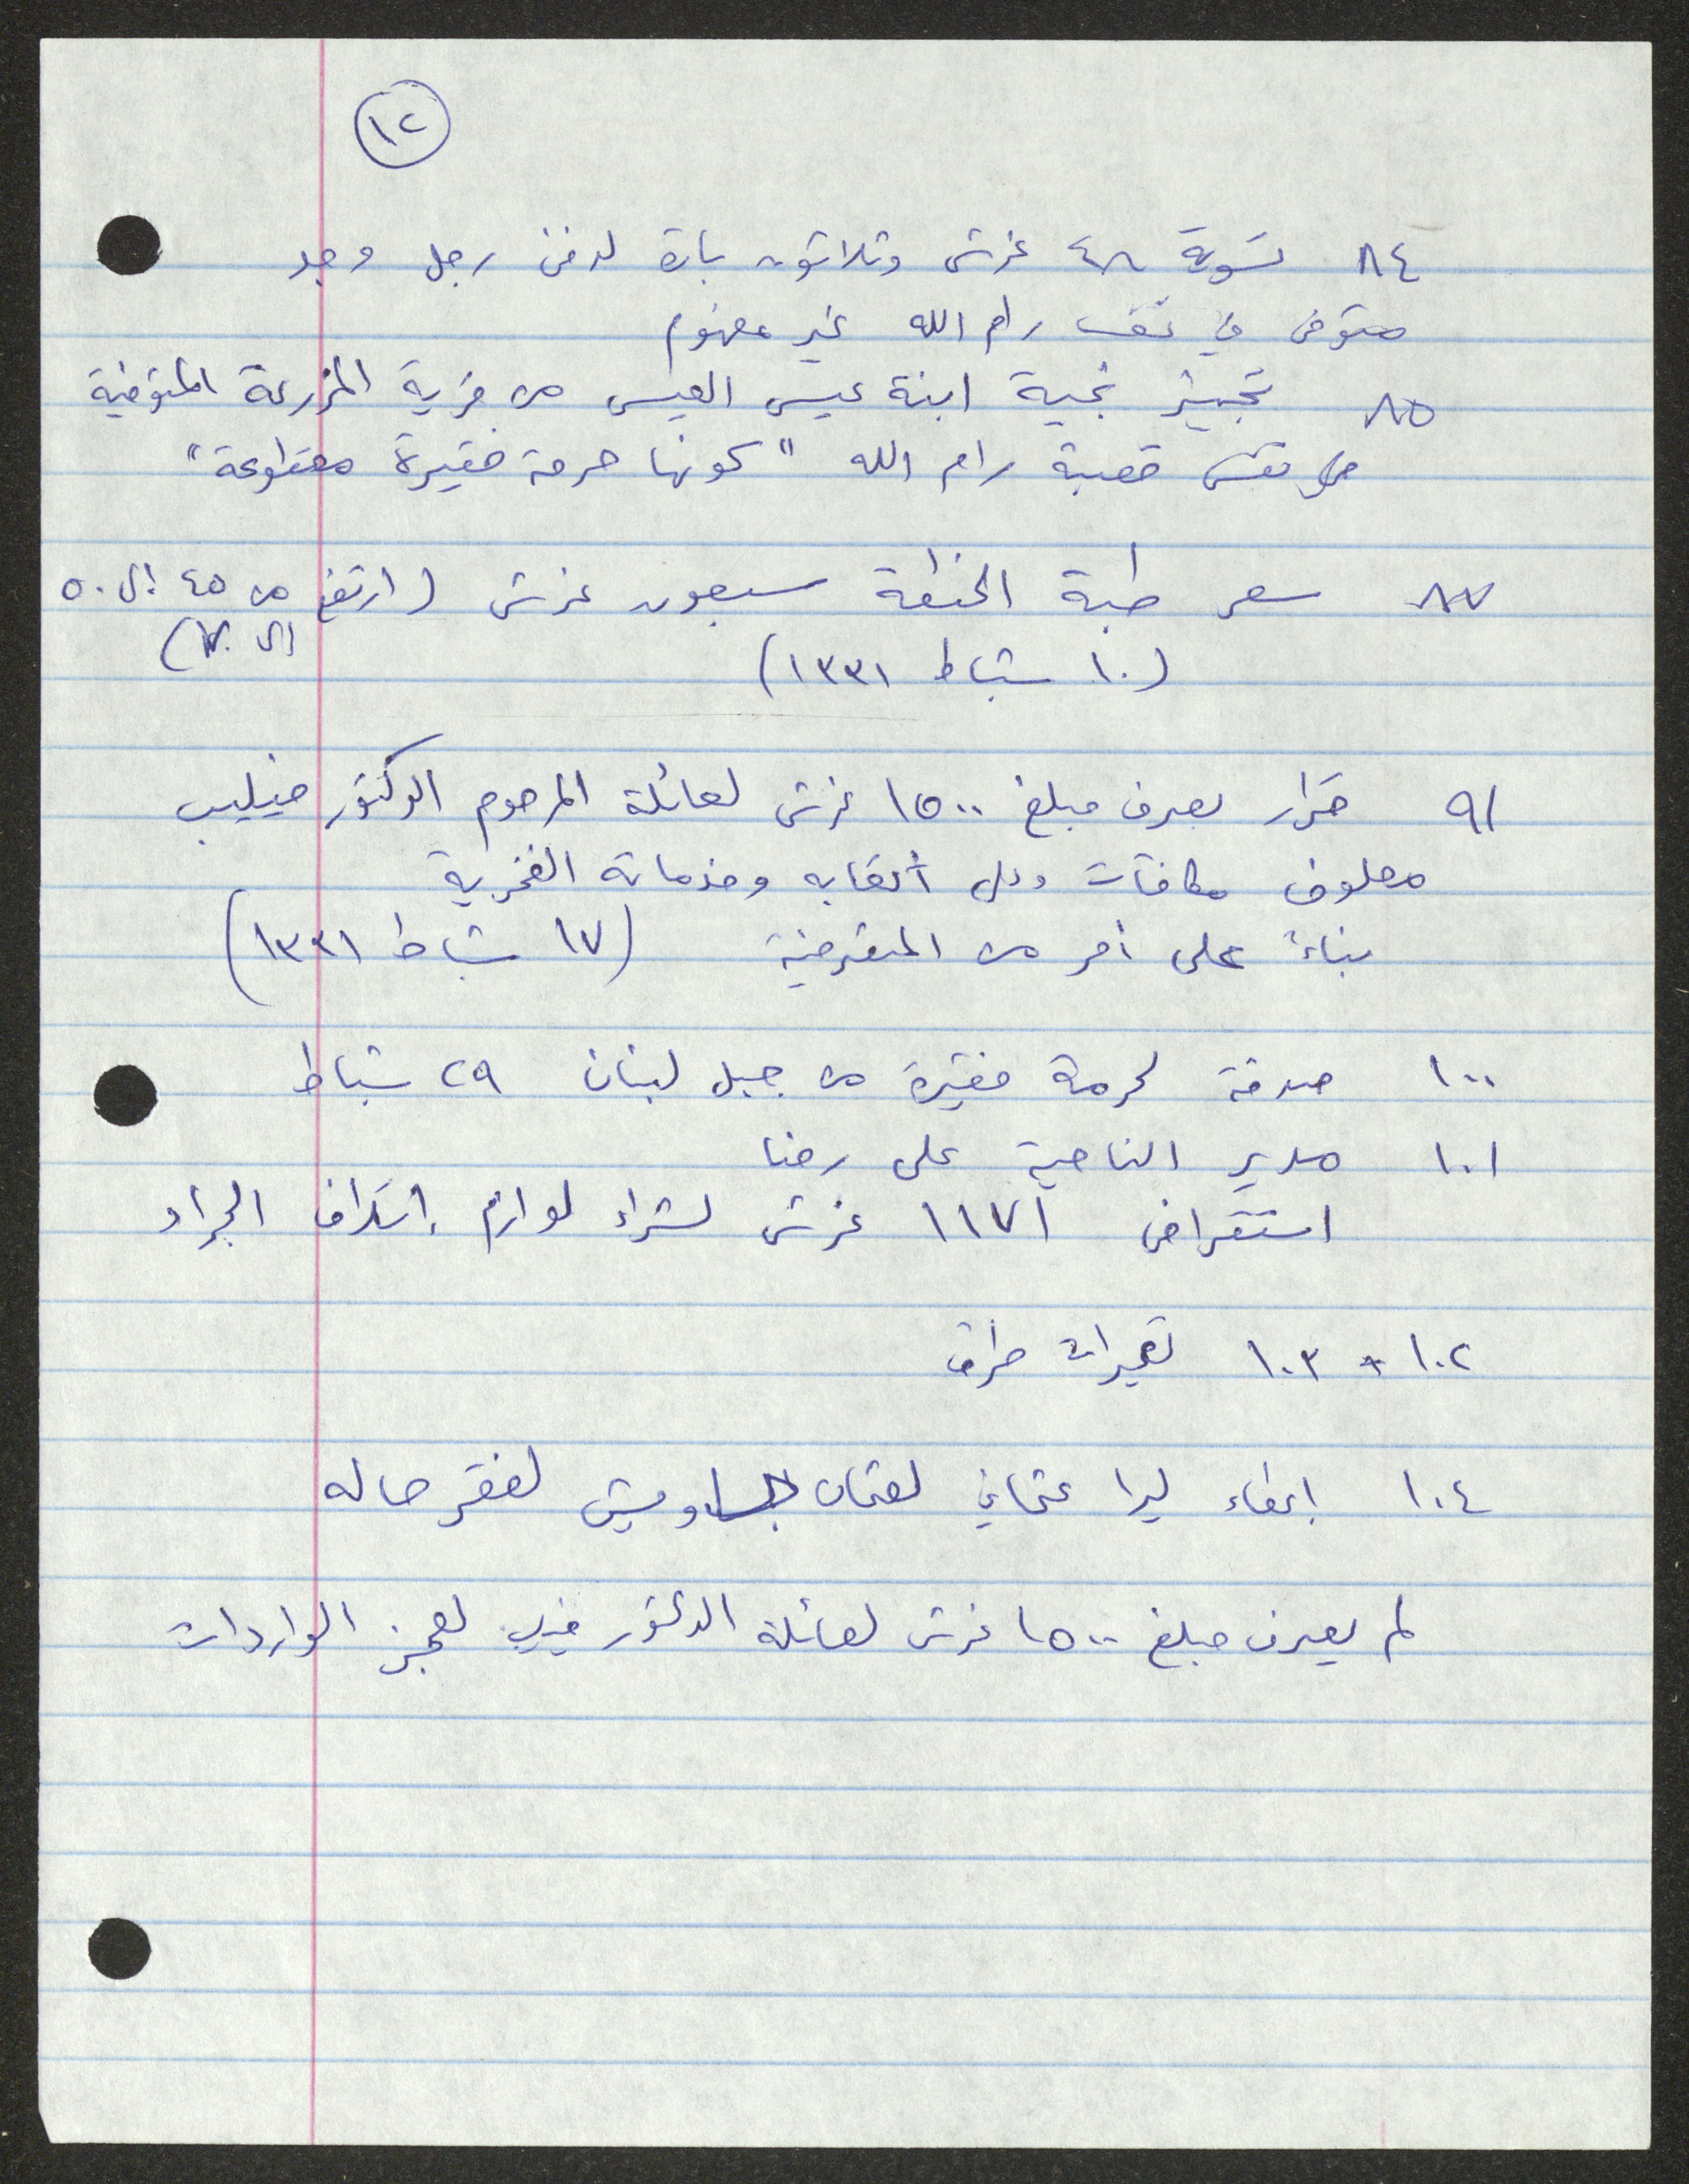 ١٢
٨٤ تسوية ٤٨ غرش وثلاثون بارة لدفن رجل وجد
متوفى في نفس رام الله غير معلوم
٨٥ تجهيز نجية ابنة عيسى العيسى من قرية المزرعة المتوفية
في نفس قصبة رام الله "كونها حرمة فقيرة مقطوعة"
٨٧ سعر طبة الحنطة سبعون غرش (ارتفع من ٤٥ إلى ٥٠
إلى ٧٠)
(١٠ شباط ١٣٣١)
٩١ قرار بصرف مبلغ ١٥٠٠ غرش لعائلة المرحوم الدكتور فيليب
معلوف مكافآت وعلى أتعابه وخدماته الفخرية
بناءً على أمر من المتصرفية (١٧ شباط ١٣٣١)
١٠٠ صدقة لحرمة فقيرة من جبل لبنان ٢٩ شباط
١٠١ مدير الناحية على رضا
استقراض ١١٧١ غرش لشراء لوازم إتلاف الجراد
١٠٢ + ١٠٣ تعميرات طرق
١٠٤ إعفاء ليرا عثماني لعثمان لفقر حاله
لم يصرف مبلغ ١٥٠٠ غرش لعائلة الدكتور فيليب لعجز الواردات